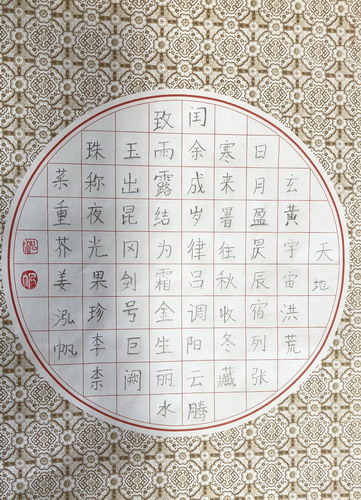 天地
玄黄宇宙洪荒
日月盈昃辰宿列张
寒来暑往秋收冬藏
闰余成岁律吕调阳云腾
致雨露结为霜金生丽水
玉出昆冈剑号巨阙
珠称夜光果珍李柰
菜重芥姜泓帆